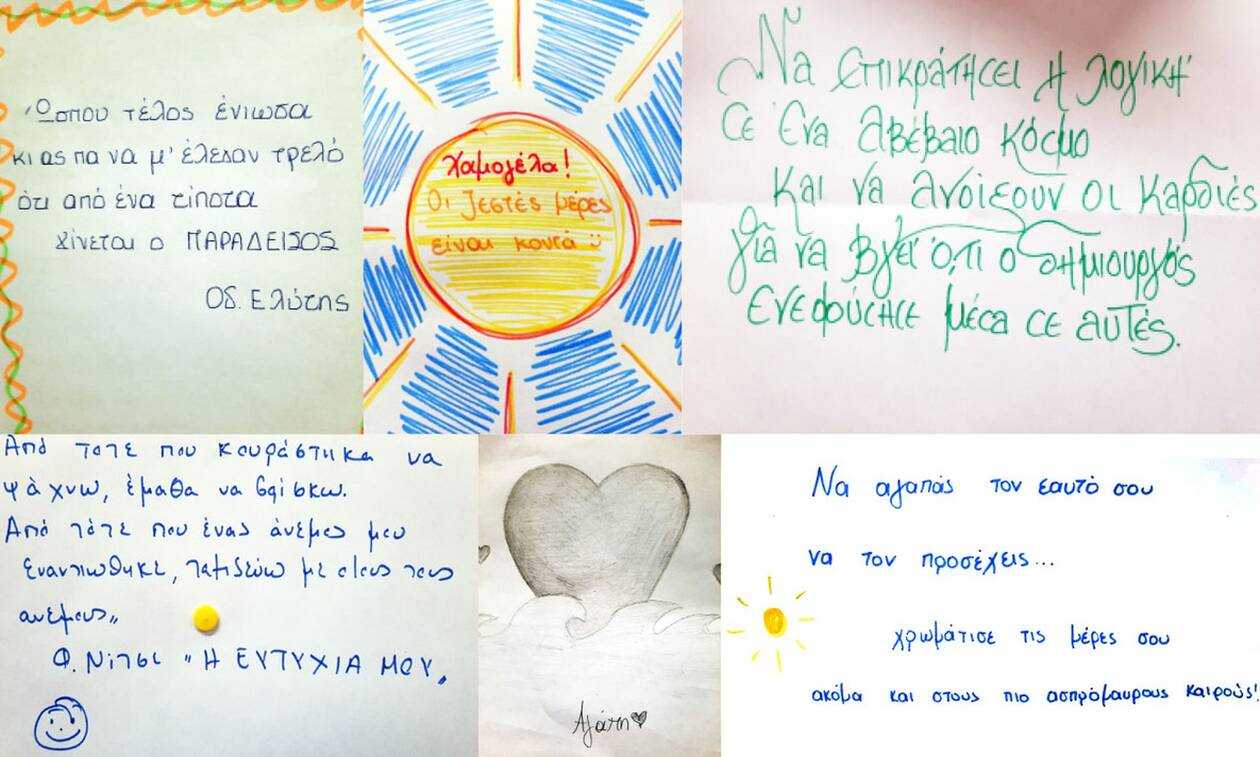 Ώσπου τέλος ένιωσα
κι ας πα να μ' έλεγαν τρελό
ότι από ένα τίποτα
γίνεται ο ΠΑΡΑΔΕΙΣΟΣ
ΟΔ. Ελύτης
Χαμογέλα!
Οι ζεστές μέρες
είναι κοντά
Να επικρατήσει η λογική
σε ένα αβέβαιο κόσμο
και να ανοίξουν οι καρδιές
για να βγει ό,τι ο δημιουργός
ενεφύσησε μέσα σε αυτές.
Από τοτε που κουράστηκα να
ψάχνω, έμαθα να βρίσκω.
Από τότε που ένας άνεμος μου
εναντιωθηκε, ταξιδεύω με ολους τους
ανέμους"
Φ. Νίτσε "Η ΕΥΤΥΧΙΑ ΜΟΥ"
Αγάπη
Να αγαπάς τον εαυτό σου
να τον προσέχεις...
χρωμάτισε τις μέρες σου
ακόμα και στους πιο ασπρόμαυρους καιρούς!